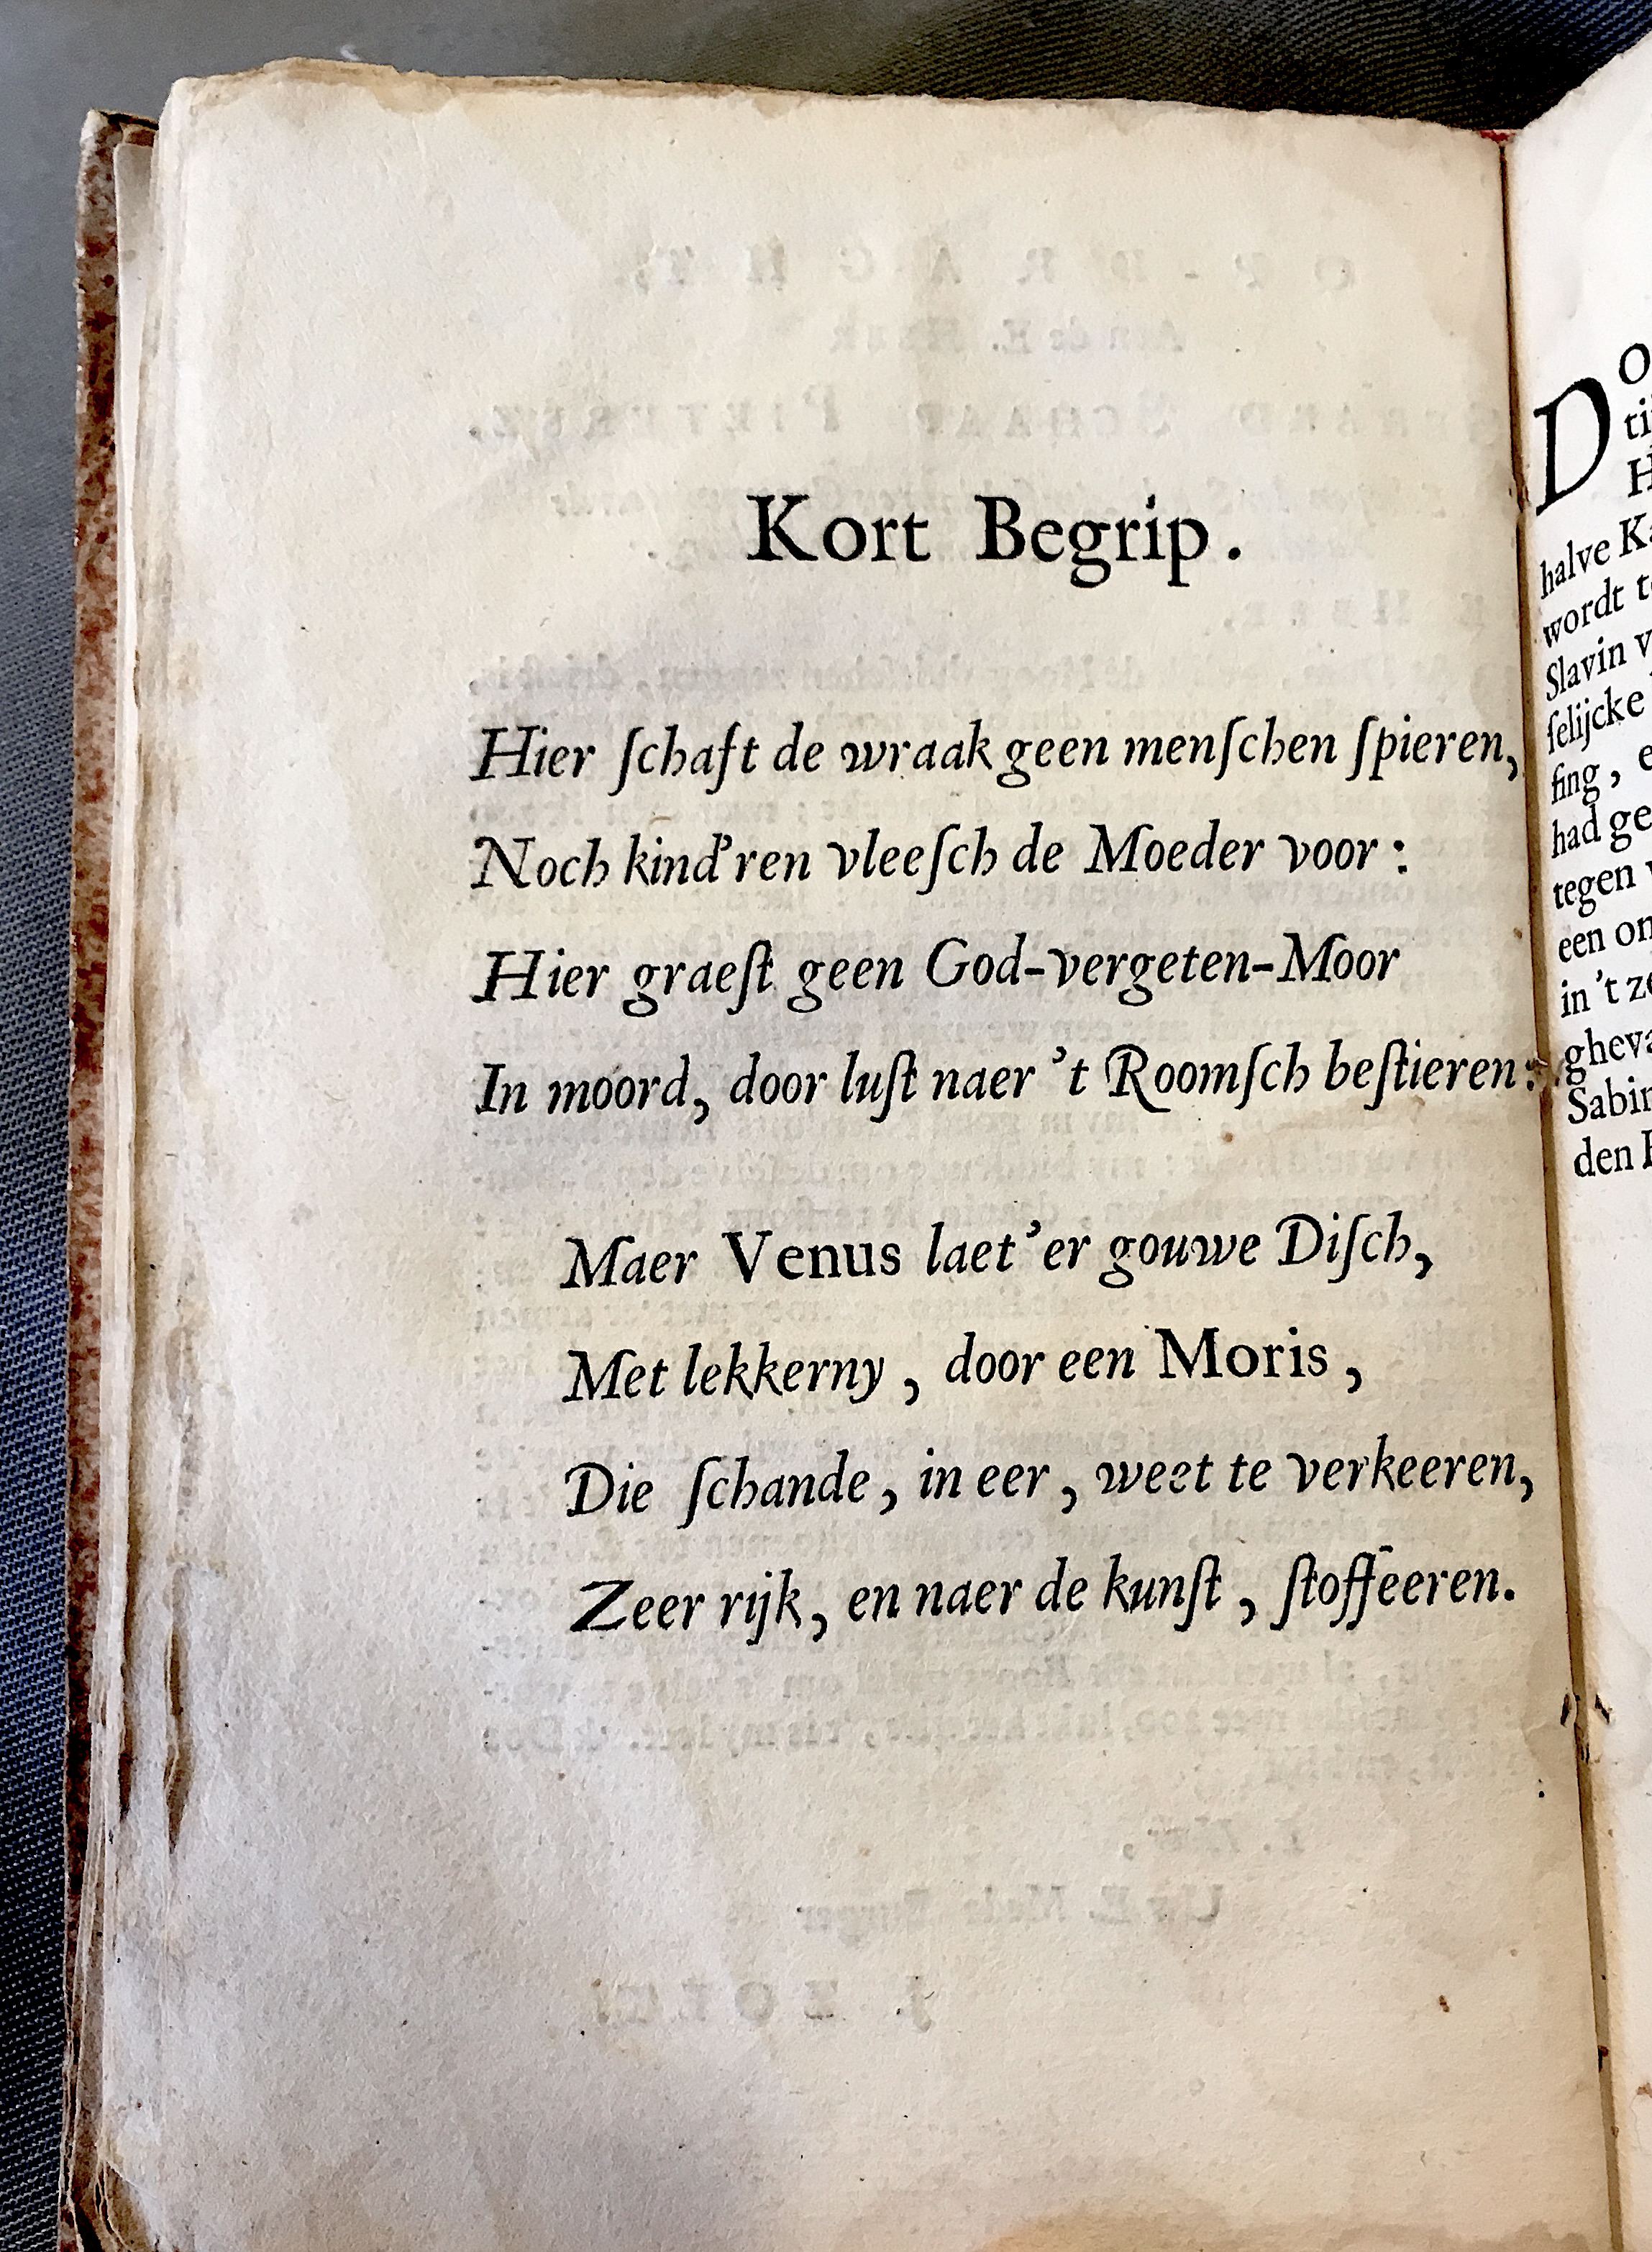 Kort Begrip.
Hier ſchaft de wraak geen menſchen ſpieren,
Noch kind'ren vleeſch de Moeder voor:
Hier graeſt geen God-vergeten-Moor
In moord, door luſt naer 't Roomſch beſtieren:
Maer Venus laet'er gouwe Diſch,
Met lekkerny, door een Moris,
Die ſchande, in eer, weet te verkeeren,
Zeer rijk, en naer de kunſt, ſtoffeeren.
halve
wordt
Slavin
ſelijcke
fing, e
had ge
tegen
een
in 't
Sabin
den